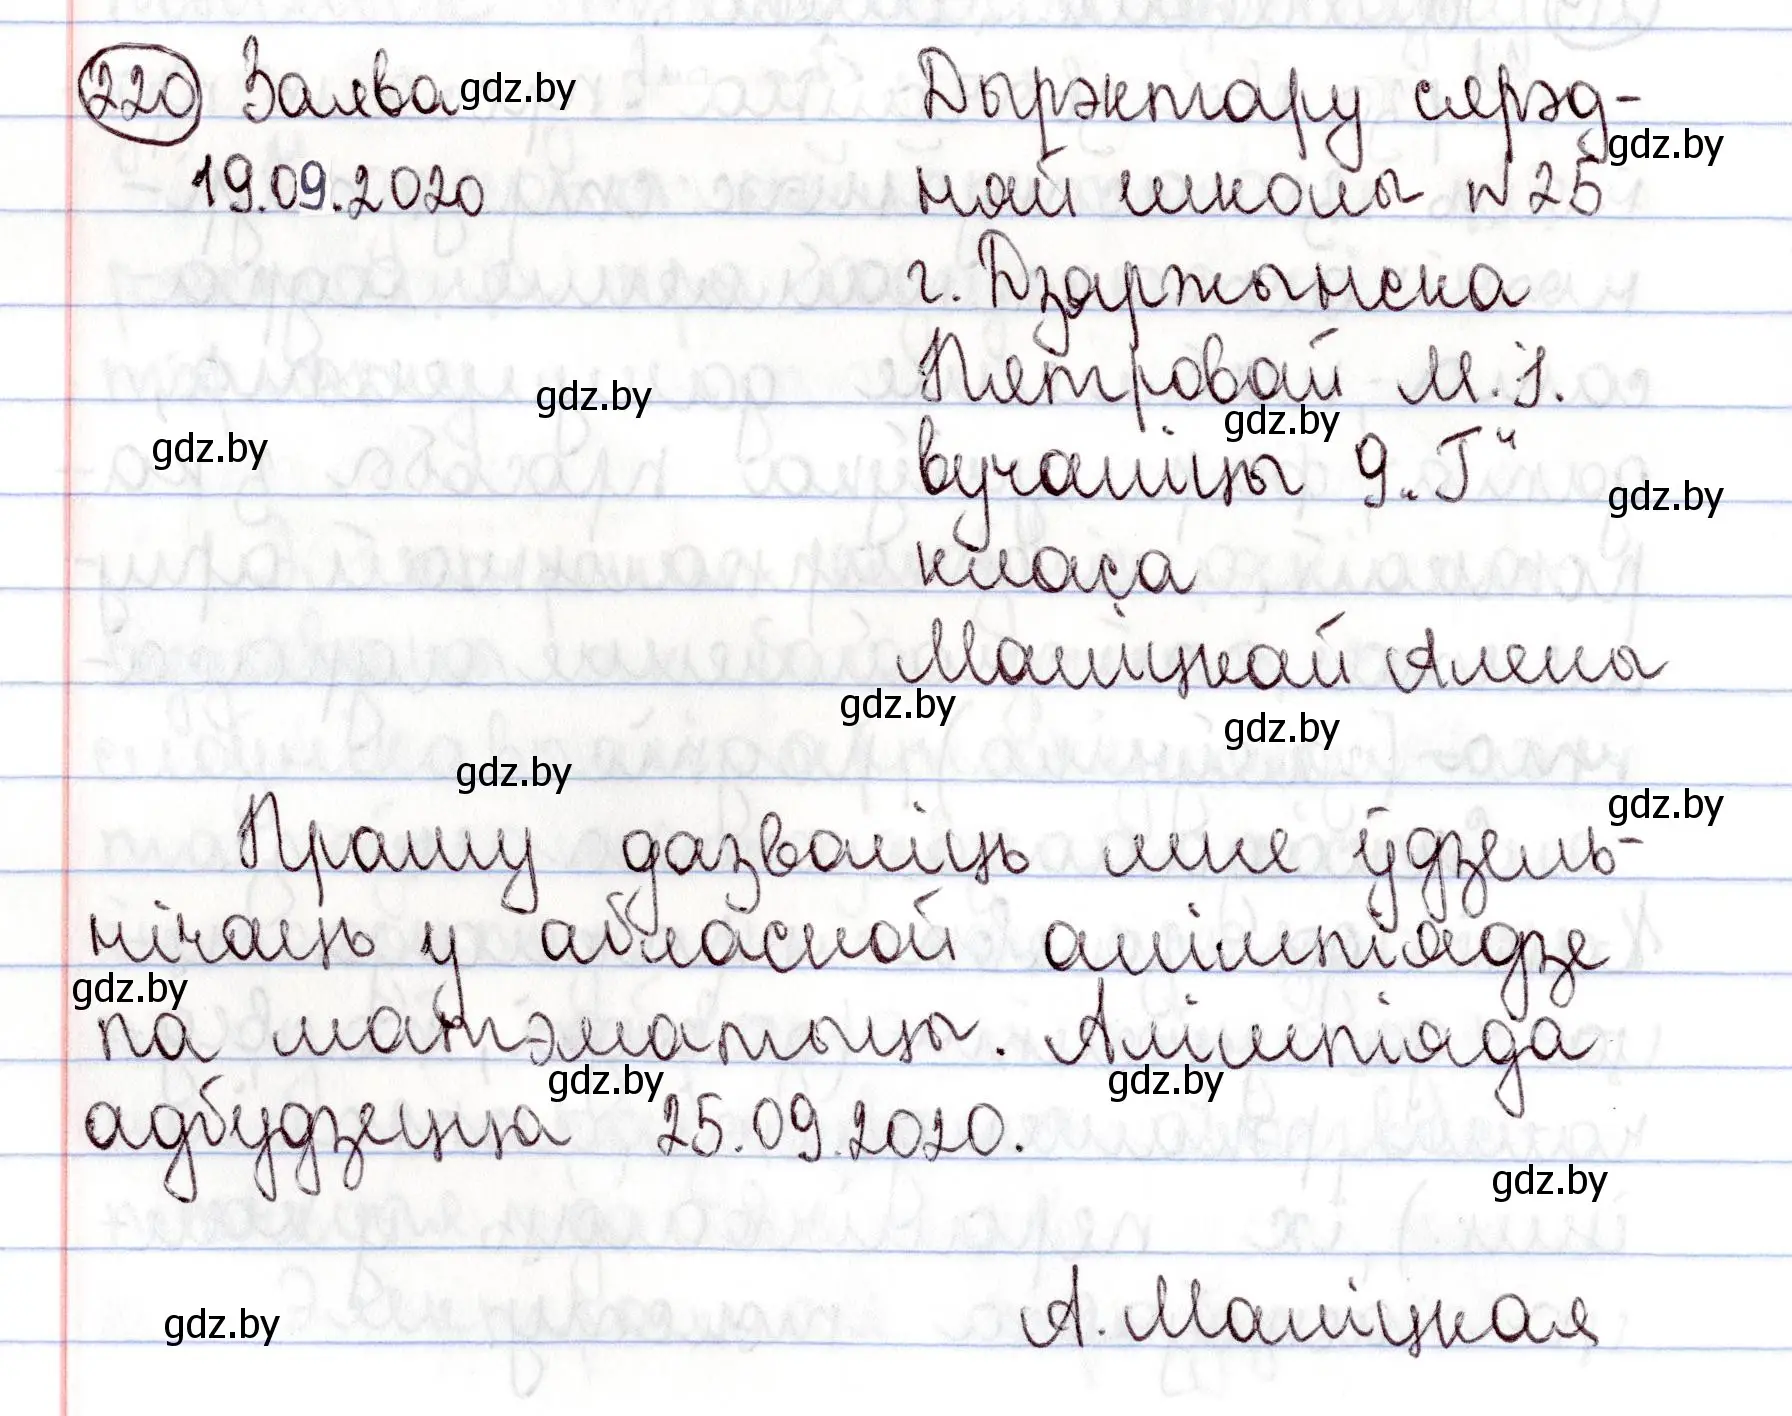 220 Заява gdz.by Дырэктару сярэд-
gdz.by
19.09.2020 няй школы №25
г. Дзяржынска
Пятровай М.І.
gdz.by gdz.by
gdz.by вучаніцы 9 „Г“
gdz.by
класа
Маліцкай Алены
gdz.by gdz.by
gdz.by gdz.by
Прашу дазволіць мне ўдзель-
нічаць у абласной алімпіядзе
gdz.by
па матэматыцы. Алімпіяда
gdz.by gdz.by
адбудзецца 25.09.2020.
gdz.by
gdz.by А. Маліцкая